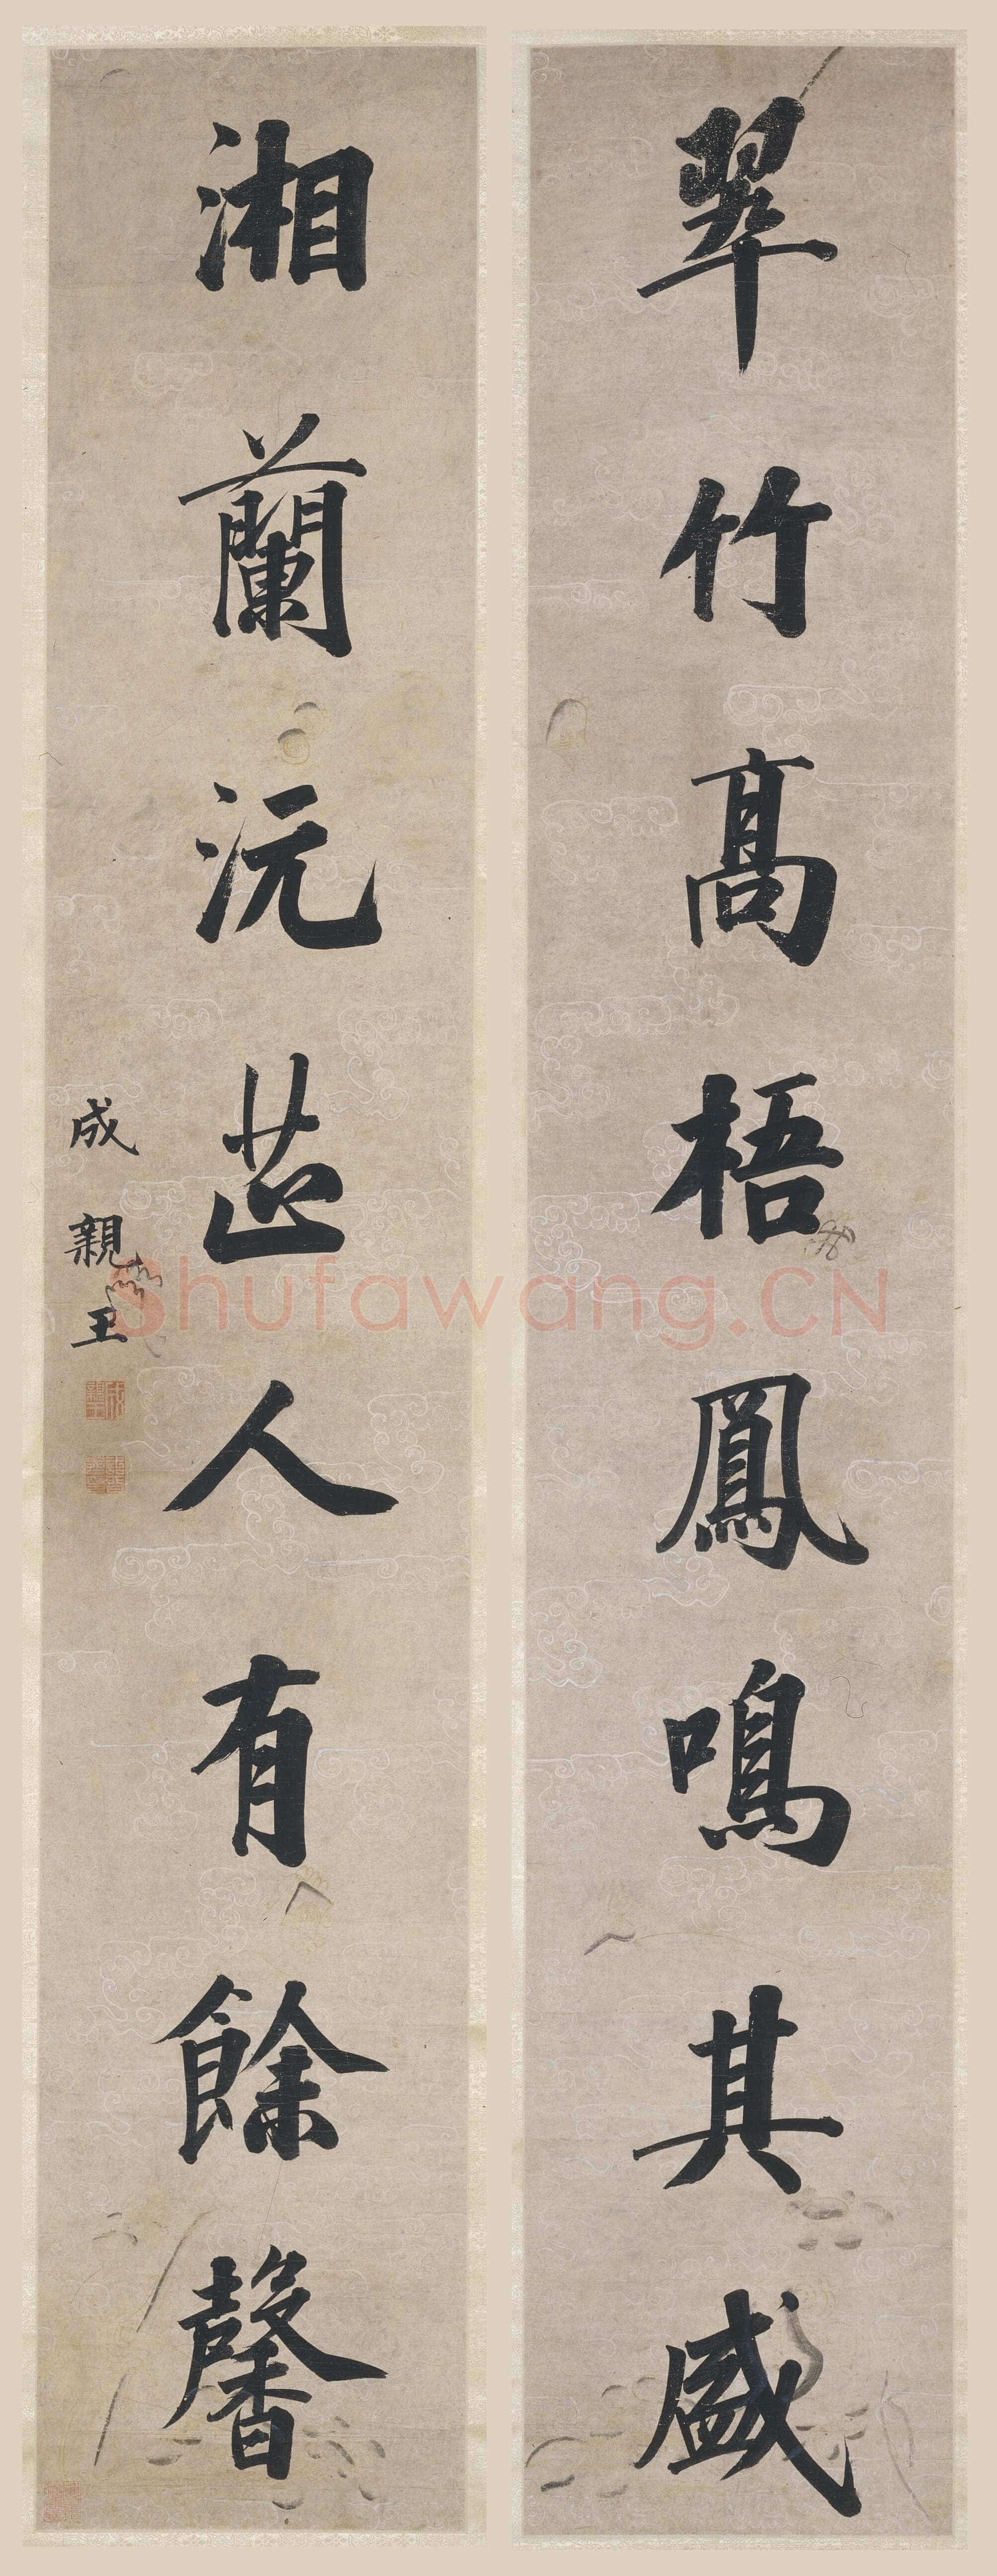 翠竹高梧鳳鳴其盛
湘蘭沅芷人有餘馨
成親王
Shufawang.CN